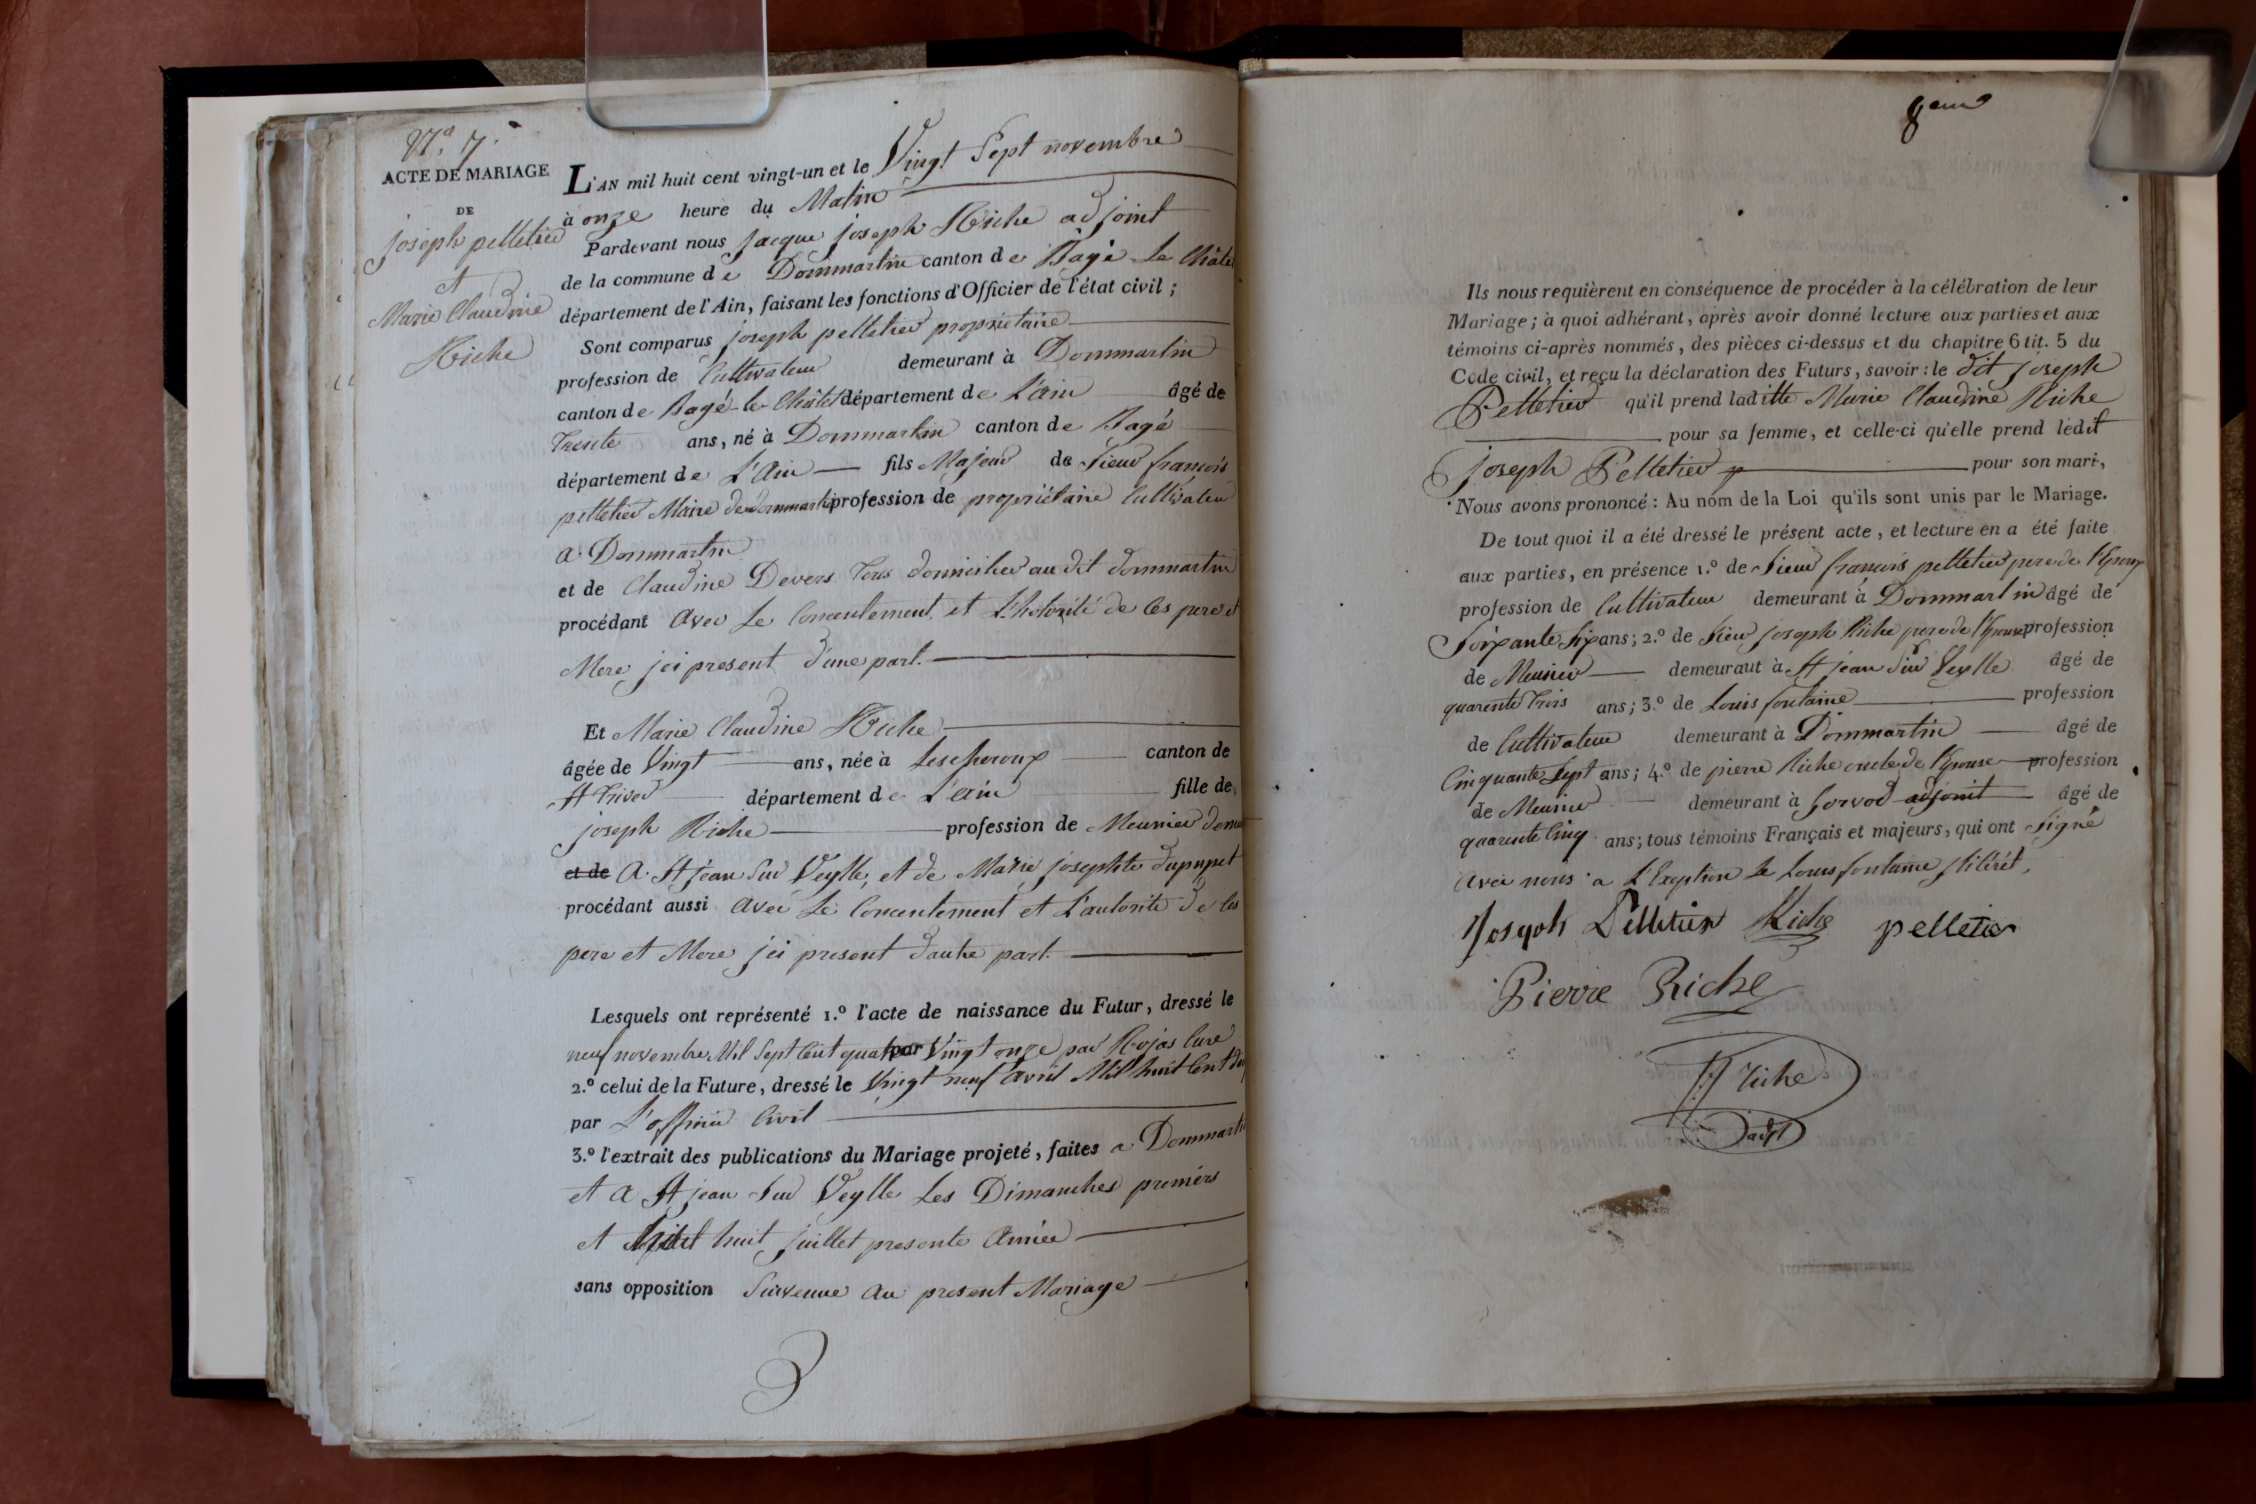 N.° 7.
ACTE DE MARIAGE
DE
joseph pelletier
et
Marie Claudine
Riche
L'AN mil huit cent vingt-un et le Vingt Sept novembre
à onze heure du Matin
Pardevant nous jacque joseph Riche adjoint
de la commune de Dommartin canton de Bagé Le Châtel
département de l'Ain, faisant les fonctions d'Officier de l'état civil ;
Sont comparus joseph pelletier propriétaire
profession de Cultivateur demeurant à Dommartin
canton de Bagé-le-Châtel département de L'ain âgé de
Trente ans, né à Dommartin canton de Bagé
département de L'Ain fils Majeur de Sieur françois
pelletier Maire de dommartin profession de propriétaire Cultivateur
a Dommartin
et de Claudine Devers Tous domicilier au dit dommartin
procédant avec Le Concentement et L'hotorité de Ces pere et
Mere jci present d'une part.
Et Marie Claudine Riche
âgée de Vingt ans, née à Lescheroux canton de
St Trivier département de L'ain fille de
joseph Riche profession de Meunier
et de A St jean Sur Veylle, et de Marie josephte dupupet
procédant aussi avec Le Concentement et L'autorité de Ces
pere et Mere jci present d'autre part.
Lesquels ont représenté 1.° l'acte de naissance du Futur, dressé le
neuf novembre Mil Sept Cent quatre par Vingt onze par Rojas Curé
2.° celui de la Future, dressé le Vingt neuf avril Mil huit Cent
par L'officier Civil
3.° l'extrait des publications du Mariage projeté, faites a Dommartin
et A St jean Sur Veylle Les Dimanches premiers
et huit juillet presente Année
sans opposition Survenue au present Mariage
8eme
Ils nous requièrent en conséquence de procéder à la célébration de leur
Mariage ; à quoi adhérant, après avoir donné lecture aux parties et aux
témoins ci-après nommés, des pièces ci-dessus et du chapitre 6 tit. 5 du
Code civil, et reçu la déclaration des Futurs, savoir : le dit joseph
Pelletier qu'il prend laditte Marie Claudine Riche
pour sa femme, et celle-ci qu'elle prend ledit
joseph Pelletier pour son mari,
Nous avons prononcé : Au nom de la Loi qu'ils sont unis par le Mariage.
De tout quoi il a été dressé le présent acte, et lecture en a été faite
aux parties, en présence 1.° de Sieur françois pelletier pere de l'Epoux
profession de Cultivateur demeurant à Dommartin âgé de
Soixante Six ans ; 2.° de Sieur joseph Riche pere de l'Epouse profession
de Meunier demeurant à St jean Sur Veylle âgé de
quarente Trois ans ; 3.° de Louis fontaine profession
de Cultivateur demeurant à Dommartin âgé de
Cinquante Sept ans ; 4.° de pierre Riche oncle de l'Epouse profession
de Meunier demeurant à jorvod adjonit âgé de
quarente Cinq ans ; tous témoins Français et majeurs, qui ont Signé
avec nous a L'Exeption de Louis fontaine jlitérét,
Joseph Pelletier Riche pelletier
Pierre Riche
Riche
adjt